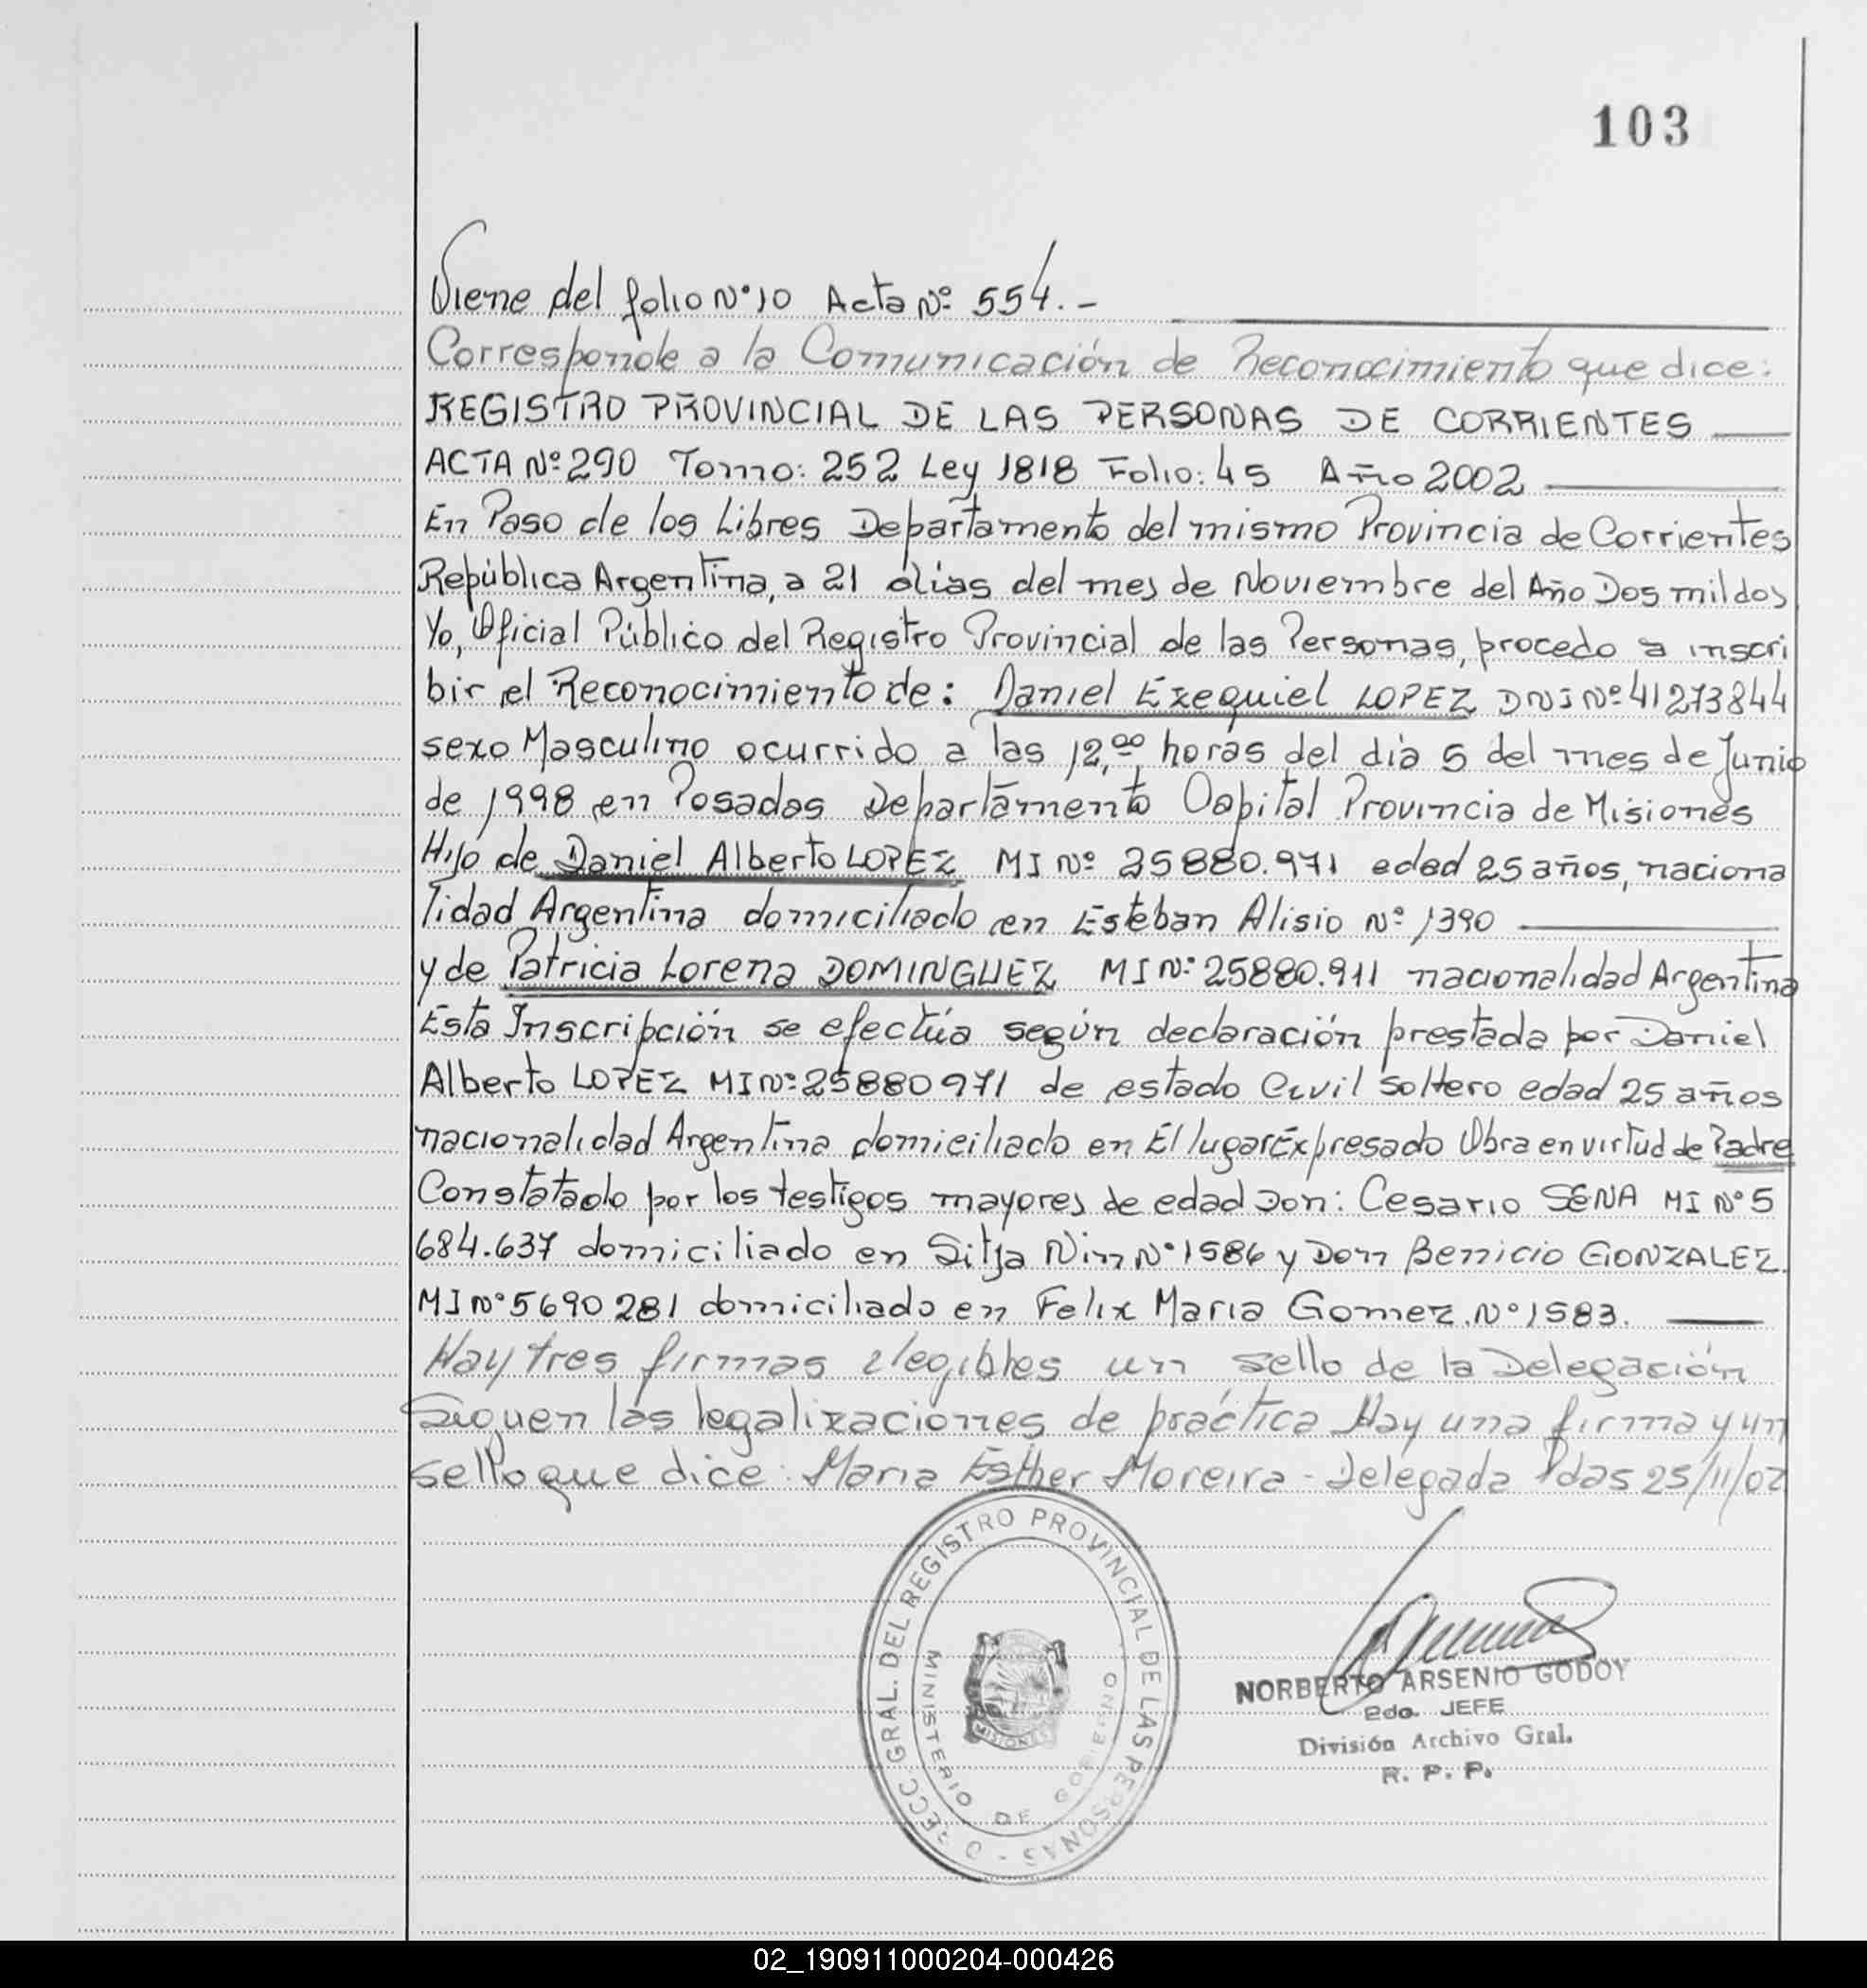 103
Viene del folio Nº 10 Acta Nº 554.-
Corresponde a la Comunicación de Reconocimiento que dice:
REGISTRO PROVINCIAL DE LAS PERSONAS DE CORRIENTES
ACTA Nº 290 Tomo: 252 Ley 1818 Folio: 45 Año 2002
En Paso de los Libres Departamento del mismo Provincia de Corrientes
República Argentina, a 21 días del mes de Noviembre del Año Dos mil dos
Yo, Oficial Público del Registro Provincial de las Personas, procedo a inscri
bir el Reconocimiento de: Daniel Exequiel LOPEZ DNI Nº 41273844
sexo Masculino ocurrido a las 12,00 horas del día 5 del mes de Junio
de 1998 en Posadas Departamento Capital Provincia de Misiones
Hijo de Daniel Alberto LOPEZ MI Nº 25880.971 edad 25 años, naciona
lidad Argentina domiciliado en Esteban Alisio Nº 1390
y de Patricia Lorena DOMINGUEZ MI Nº 25880.911 nacionalidad Argentina
Esta Inscripción se efectúa según declaración prestada por Daniel
Alberto LOPEZ MI Nº 25880971 de estado Civil soltero edad 25 años
nacionalidad Argentina domiciliado en El lugar Expresado Obra en virtud de Padre
Constatado por los testigos mayores de edad Don: Cesario SENA MI Nº 5
684.637 domiciliado en Sitja Nin Nº 1586 y Don Benicio GONZALEZ
MI Nº 5690281 domiciliado en Felix Maria Gomez Nº 1583.
Hay tres firmas ilegibles un sello de la Delegación
Siguen las legalizaciones de práctica Hay una firma y un
sello que dice: Maria Esther Moreira - Delegada Pdas 25/11/02
DIRECC. GRAL. DEL REGISTRO PROVINCIAL DE LAS PERSONAS -
MINISTERIO DE GOBIERNO
MISIONES
NORBERTO ARSENIO GODOY
2do. JEFE
División Archivo Gral.
R. P. P.
02_190911000204-000426